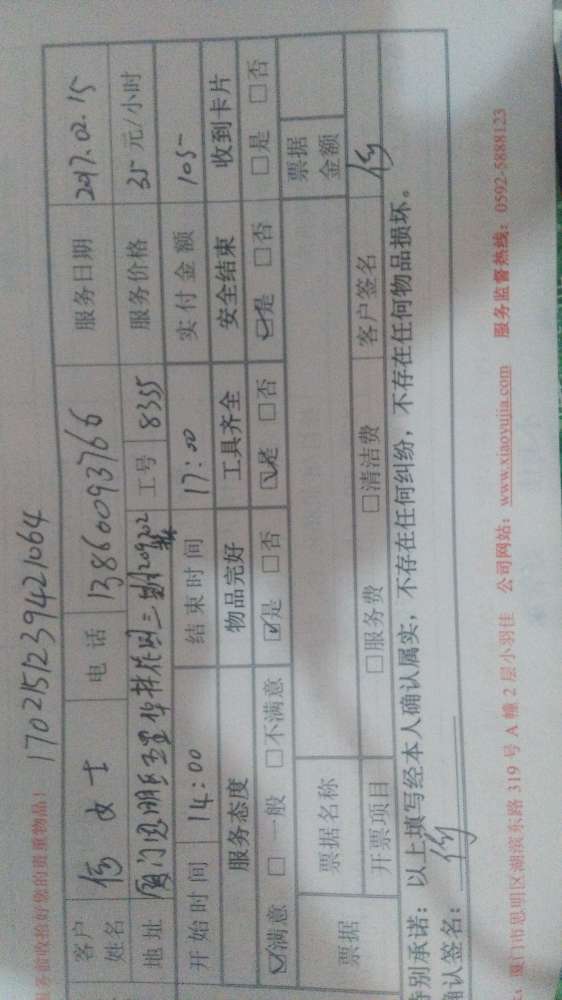 服务前收拾好您的贵重物品！ 1702151239421064
客户姓名 何女士 电话 13860093766 服务日期 2017.02.15
地址 厦门思明区 工号 8335 服务价格 35元/小时
开始时间 14:00 结束时间 17:00 实付金额 105
服务态度 物品完好 工具齐全 安全结束 收到卡片
☑满意 □一般 □不满意 ☑是 □否 ☑是 □否 ☑是 □否 □是 □否
票据 票据名称 票据金额
开票项目 □服务费 □清洁费 客户签名 何
特别承诺：以上填写经本人确认属实，不存在任何纠纷，不存在任何物品损坏。
确认签名：何
厦门市思明区湖滨东路 319 号 A 幢 2 层小羽佳 公司网站：www.xiaoyujia.com 服务监督热线：0592-5888123